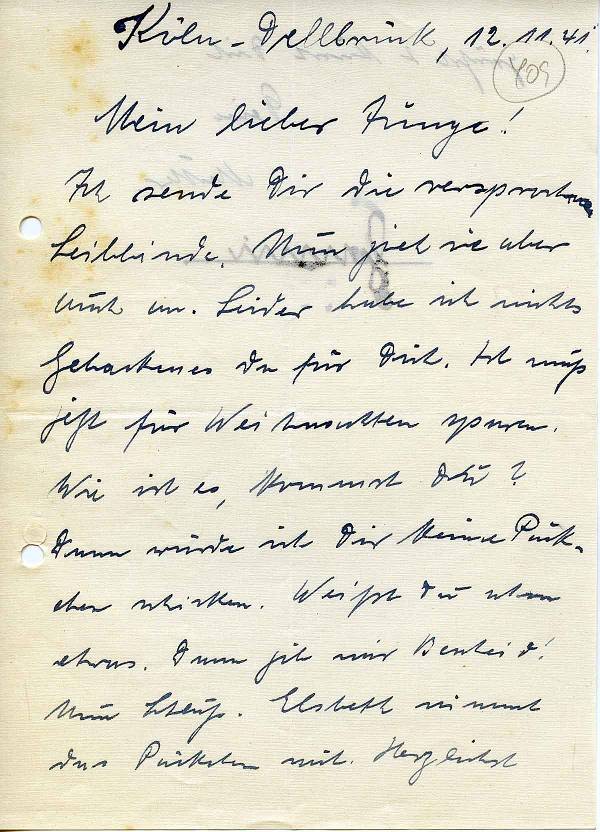 Köln-Dellbrück, 12.11.41.
809
Mein lieber Junge!
Ich sende Dir die versprochene
Leibbinde. Nun zieh sie aber
auch an. Leider habe ich nichts
Gebackenes da für Dich. Ich muß
jetzt für Weihnachten sparen.
Wie ist es, kommst Du?
Dann würde ich Dir keine Päck-
chen schicken. Weißt Du schon
etwas. Dann gib mir Bescheid!
Nun Schluß. Elsbeth nimmt
das Päckchen mit. Herzlichst